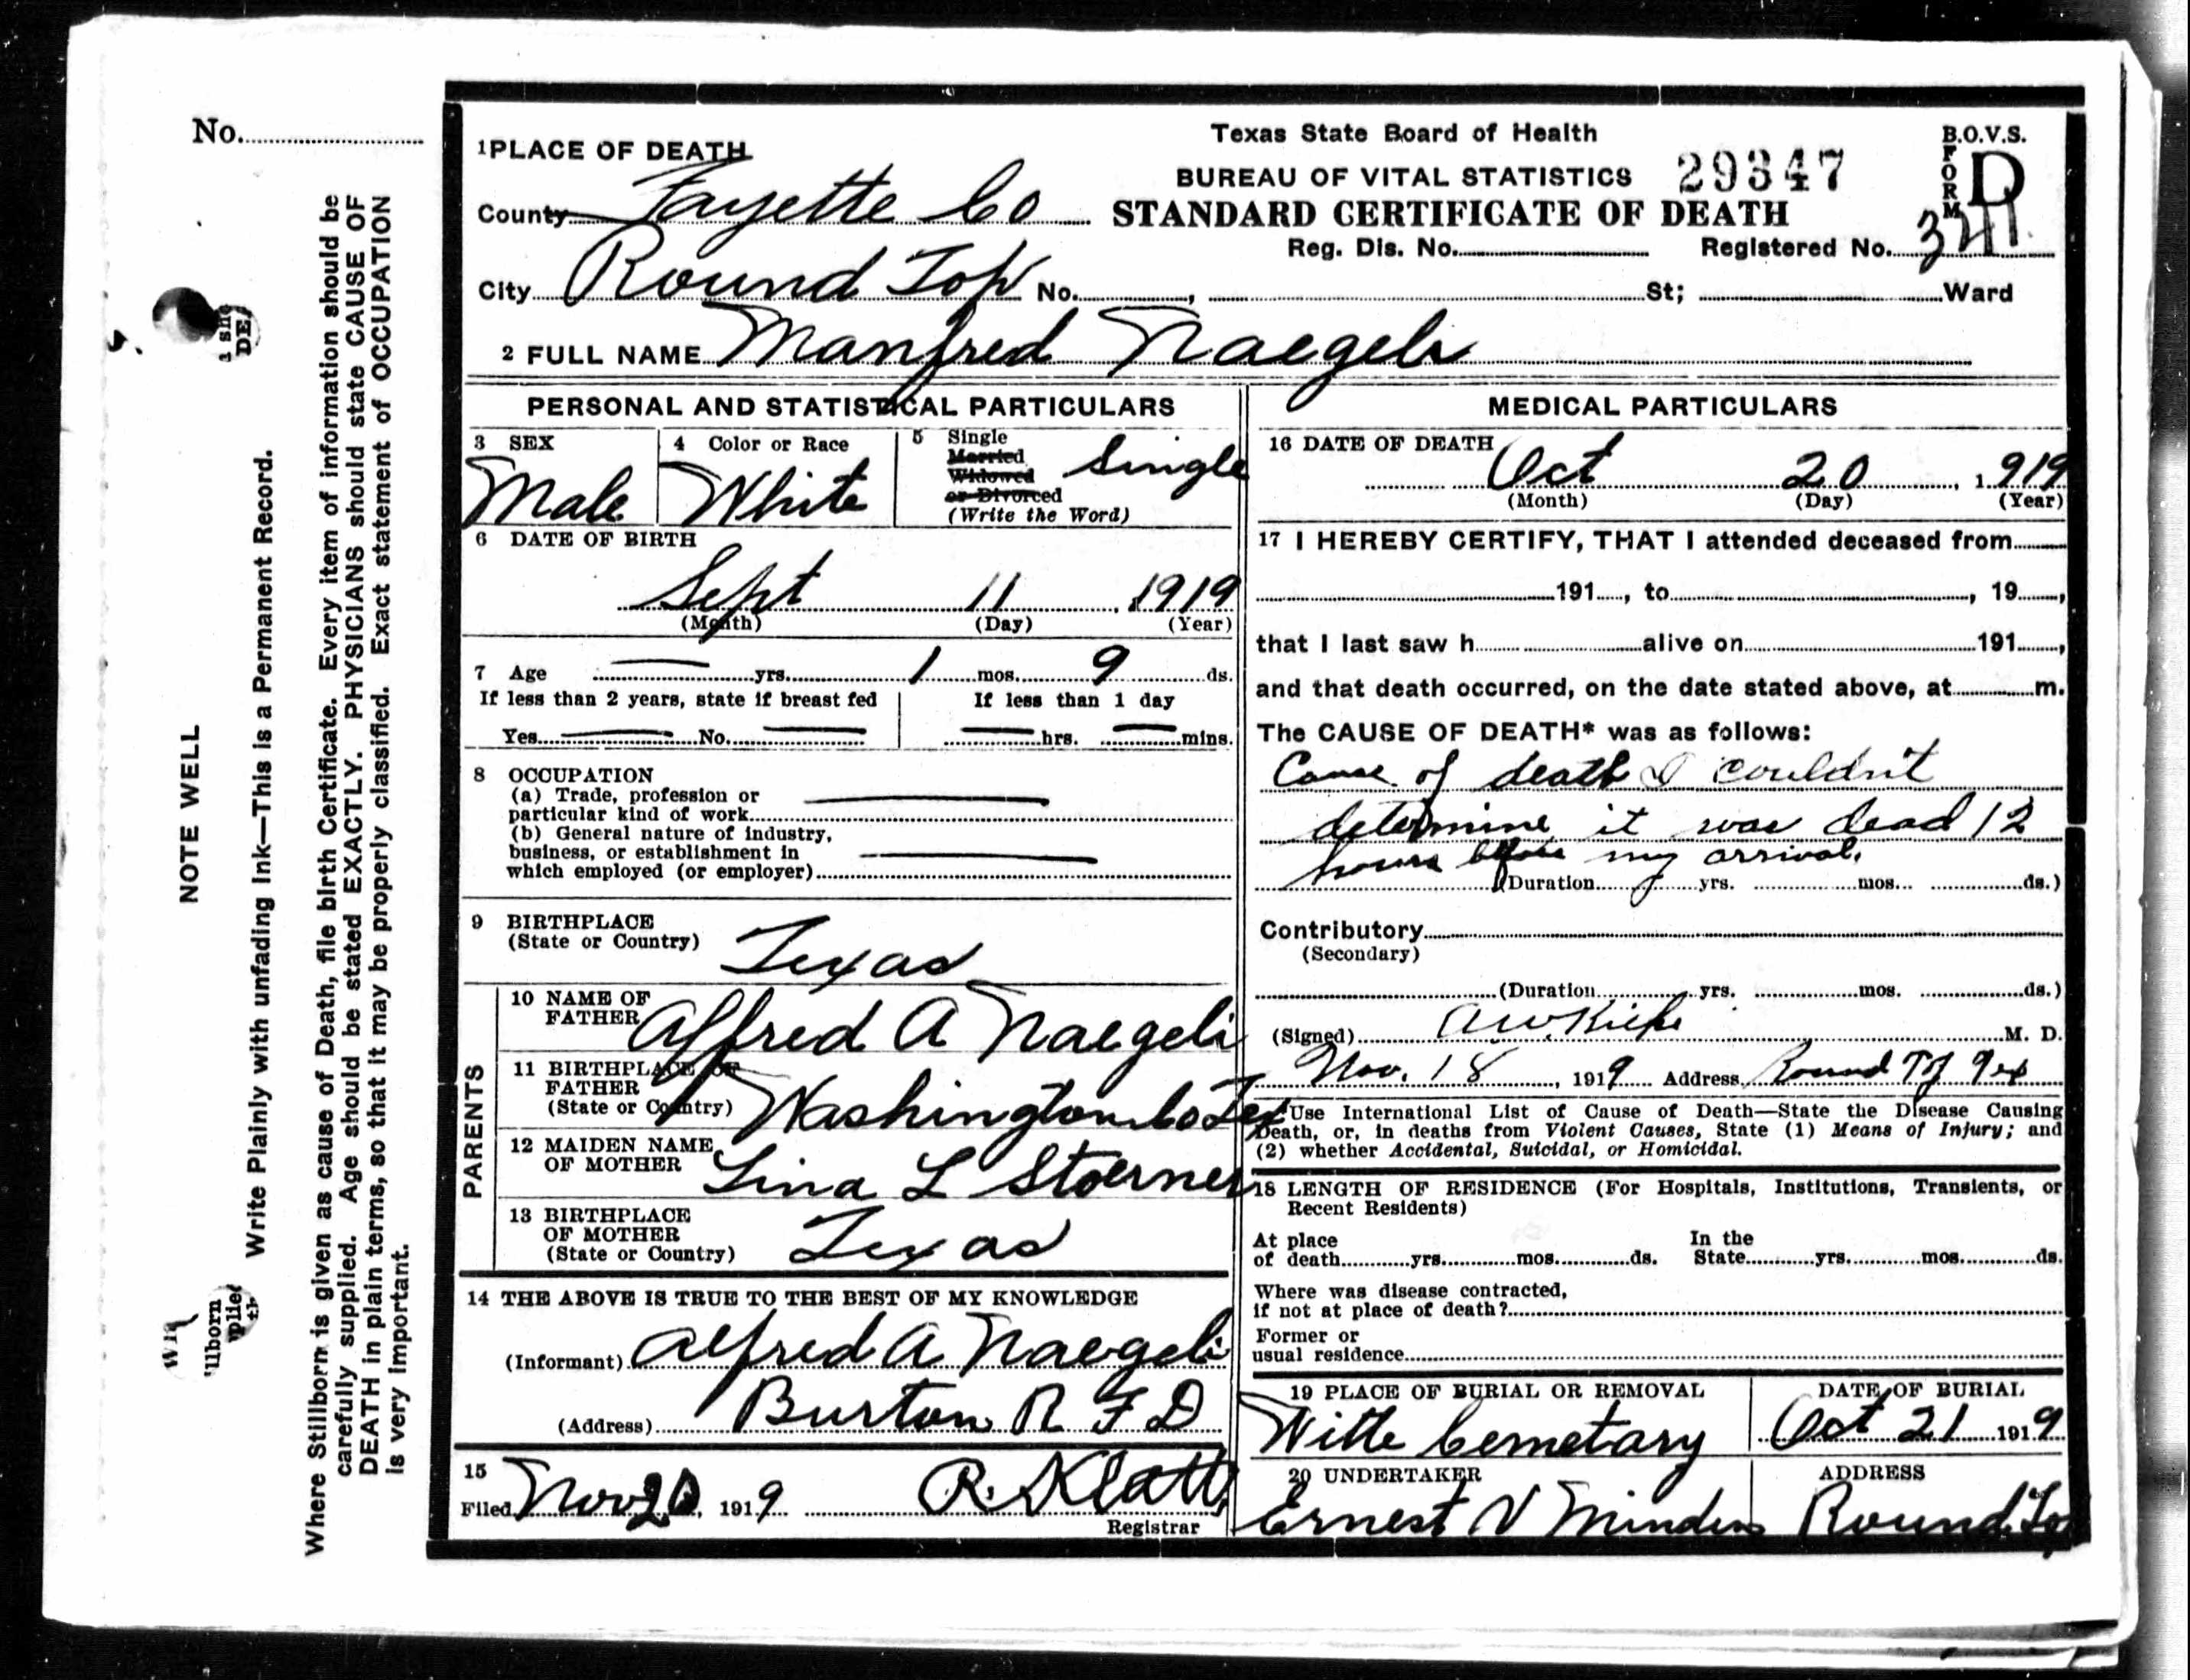 No.
NOTE WELL
Write Plainly with unfading Ink—This is a Permanent Record.
Where Stillborn is given as cause of Death, file birth Certificate. Every item of information should be
carefully supplied. Age should be stated EXACTLY. PHYSICIANS should state CAUSE OF
DEATH in plain terms, so that it may be properly classified. Exact statement of OCCUPATION
is very important.
Texas State Board of Health
BUREAU OF VITAL STATISTICS 29347
STANDARD CERTIFICATE OF DEATH
B.O.V.S.
FORM D
1 PLACE OF DEATH
County Fayette Co
Reg. Dis. No. Registered No.
City Round Top No. , St; Ward
2 FULL NAME Manfred Naegeli
PERSONAL AND STATISTICAL PARTICULARS
3 SEX
Male
4 Color or Race
White
5 Single
Married
Widowed
or Divorced
(Write the Word)
Single
6 DATE OF BIRTH
Sept 11, 1919
(Month) (Day) (Year)
7 Age — yrs. 1 mos. 9 ds.
If less than 2 years, state if breast fed
Yes — No. —
If less than 1 day
— hrs. — mins.
8 OCCUPATION
(a) Trade, profession or
particular kind of work —
(b) General nature of industry,
business, or establishment in
which employed (or employer) —
9 BIRTHPLACE
(State or Country) Texas
PARENTS
10 NAME OF
FATHER Alfred A Naegeli
11 BIRTHPLACE OF
FATHER
(State or Country) Washington Co Tex
12 MAIDEN NAME
OF MOTHER Lina L Stoerner
13 BIRTHPLACE
OF MOTHER
(State or Country) Texas
14 THE ABOVE IS TRUE TO THE BEST OF MY KNOWLEDGE
(Informant) Alfred A Naegeli
(Address) Burton R F D
15
Filed Nov 20, 1919 R. Klatt
Registrar
MEDICAL PARTICULARS
16 DATE OF DEATH
Oct 20, 1919
(Month) (Day) (Year)
17 I HEREBY CERTIFY, THAT I attended deceased from
191 , to , 19 ,
that I last saw h alive on 191 ,
and that death occurred, on the date stated above, at m.
The CAUSE OF DEATH* was as follows:
Cause of death I couldn't
determine it was dead 12
hours before my arrival.
(Duration yrs. mos. ds.)
Contributory
(Secondary)
(Duration yrs. mos. ds.)
(Signed) M. D.
Nov. 18, 1919 Address Round Top Tex
*Use International List of Cause of Death—State the Disease Causing
Death, or, in deaths from Violent Causes, State (1) Means of Injury; and
(2) whether Accidental, Suicidal, or Homicidal.
18 LENGTH OF RESIDENCE (For Hospitals, Institutions, Transients, or
Recent Residents)
At place
of death yrs. mos. ds.
In the
State yrs. mos. ds.
Where was disease contracted,
if not at place of death?
Former or
usual residence
19 PLACE OF BURIAL OR REMOVAL
Witte Cemetary
DATE OF BURIAL
Oct 21 1919
20 UNDERTAKER
Ernest V Minden
ADDRESS
Round Top